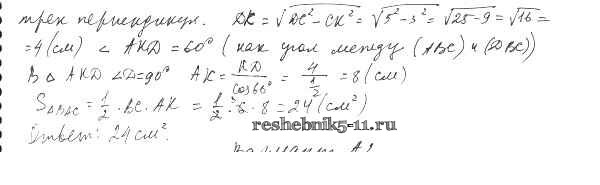 трех перпендикул. DK = √DC² − CK² = √5² − 3² = √25 − 9 = √16 =
= 4 (см) ∠ AKD = 60° (как угол между (ABC) и (DBC))
В Δ AKD ∠D = 90° AK = KD / cos 60° = 4 / ½ = 8 (см)
S ΔBAC = 1/2 · BC · AK = 1/2 · 6 · 8 = 24 (см²)
Ответ: 24 см².
reshebnik5-11.ru